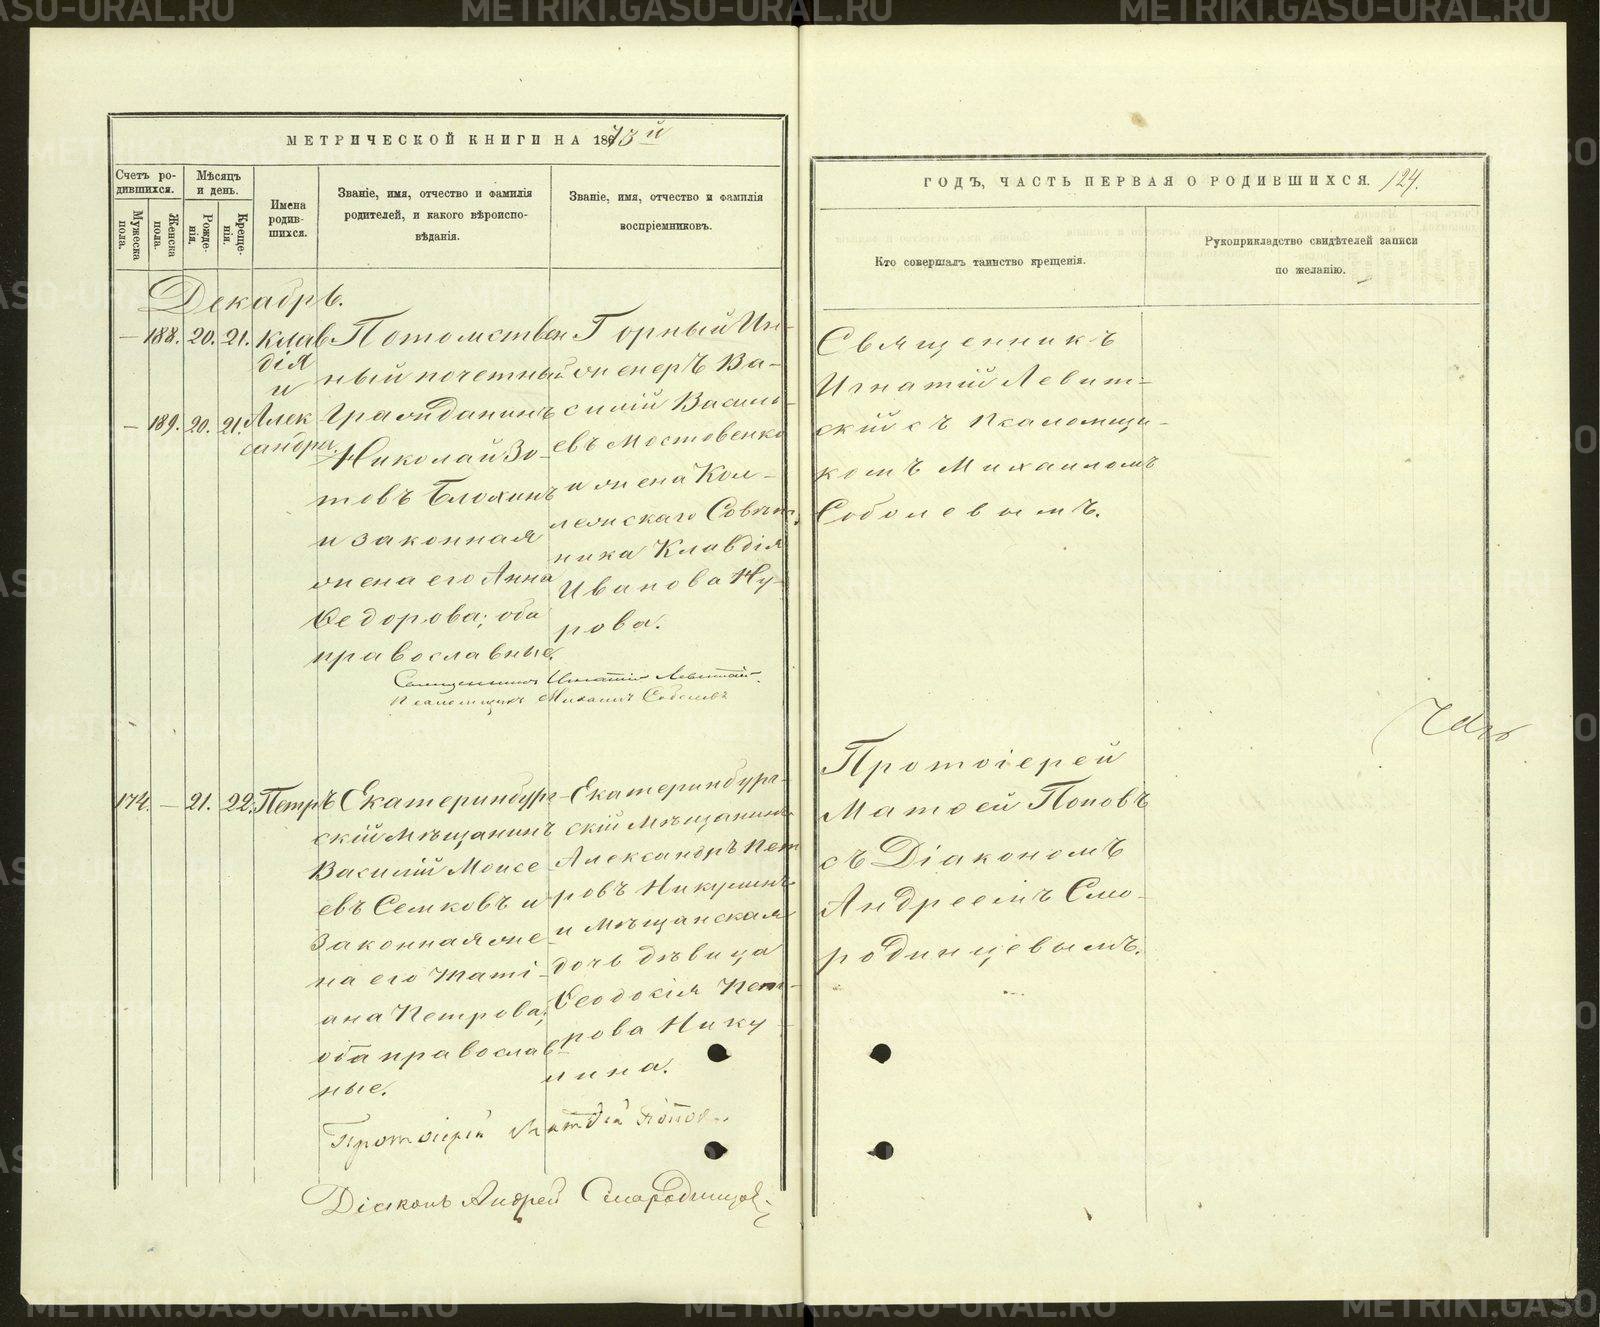 МЕТРИЧЕСКОЙ КНИГИ НА 1873й
Счетъ ро-
дившихся.
Мѣсяцъ
и день.
Мужеска
пола.
Женска
пола.
Рожде-
нія.
Креще-
нія.
Имена
родив-
шихся.
Званіе, имя, отчество и фамилія
родителей, и какого вѣроиспо-
вѣданія.
Званіе, имя, отчество и фамилія
воспріемниковъ.
Декабрь.
— 188. 20. 21.
Клав
дія
и
— 189. 20. 21.
Алек
сандра.
Потомствен
ный почетный
Гражданинъ
Николай Зо-
товъ Блохинъ
и законная
жена его Анна
Ѳедорова; оба
православные.
Горный Ин-
женеръ Ва-
силій Василь-
евъ Мостовенко
и жена Кол-
лежскаго Совѣт,
ника Клавдія
Иванова Ну-
рова.
Священникъ Игнатій Левитскій.
Псаломщикъ Михаилъ Соболевъ
174. — 21. 22. Петръ
Екатеринбург-
скій Мѣщанинъ
Василій Моисе
евъ Семковъ и
законная же-
на его Таті-
ана Петрова;
оба православ-
ные.
Екатеринбург-
скій Мѣщанинъ
Александръ Пет
ровъ Никулинъ
и Мѣщанская
дочь дѣвица
Ѳеодосія Пет-
рова Нику-
лина.
Протоіерей Матѳей Поповъ.
Діаконъ Андрей Смородинцовъ
ГОДЪ, ЧАСТЬ ПЕРВАЯ О РОДИВШИХСЯ. 124.
Кто совершалъ таинство крещенія.
Рукоприкладство свидѣтелей записи
по желанію.
Священникъ
Игнатій Левит-
скій съ Псаломщи-
комъ Михаиломъ
Соболевымъ.
Протоіерей
Матѳей Поповъ
съ Діакономъ
Андреемъ Смо-
родинцевымъ.
METRIKI.GASO-URAL.RU